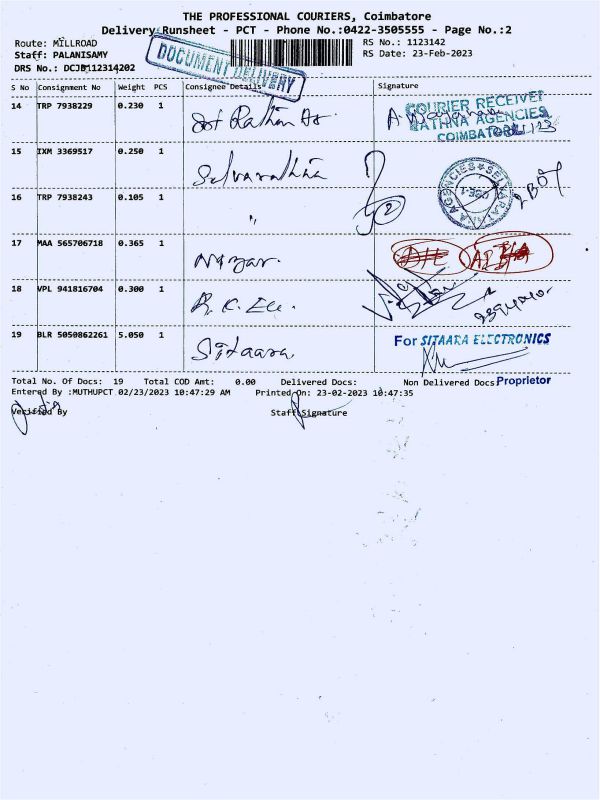 THE PROFESSIONAL COURIERS, Coimbatore
Delivery Runsheet - PCT - Phone No.:0422-3505555 - Page No.:2
Route: MILLROAD
RS No.: 1123142
Staff: PALANISAMY
RS Date: 23-Feb-2023
DRS No.: DCJB112314202
DOCUMENT DELIVERY
S No Consignment No Weight PCS Consignee Details Signature
14 TRP 7938229 0.230 1
COURIER RECEIVED
RATHNA AGENCIES
COIMBATORE
15 IXM 3369517 0.250 1 Selvarathna
16 TRP 7938243 0.105 1 "
17 MAA 565706718 0.365 1 Nizar.
18 VPL 941816704 0.300 1
19 BLR 5050862261 5.050 1 Sitaara
For SITAARA ELECTRONICS
Proprietor
Total No. Of Docs: 19 Total COD Amt: 0.00 Delivered Docs: Non Delivered Docs
Entered By :MUTHUPCT 02/23/2023 10:47:29 AM Printed On: 23-02-2023 10:47:35
Verified By Staff Signature